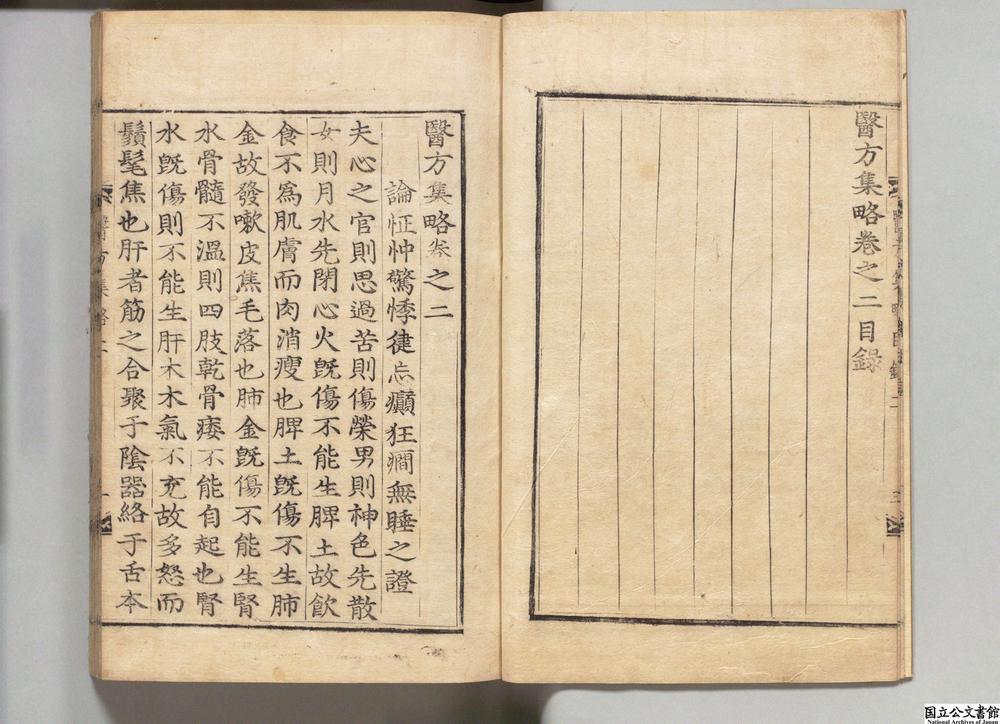 醫方集略卷之二目錄
醫方集略卷之二
論怔忡驚悸徤忘癲狂癎無睡之證
夫心之官則思過苦則傷榮男則神色先散
女則月水先閉心火旣傷不能生脾土故飮
食不爲肌膚而肉消瘦也脾土旣傷不生肺
金故發嗽皮焦毛落也肺金旣傷不能生腎
水骨髓不溫則四肢乾骨痿不能自起也腎
水旣傷則不能生肝木木氣不充故多怒而
鬚髦焦也肝者筋之合聚于陰器絡于舌本
醫方集略二
国立公文書館
National Archives of Japan